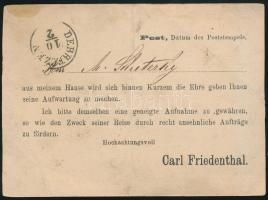 Pest, Datum des Poststempels.
DEBRECZEN
10
2
aus meinem Hause wird sich binnen Kurzem die Ehre geben Ihnen
seine Aufwartung zu machen.
Ich bitte demselben eine geneigte Aufnahme zu gewähren,
so wie den Zweck seiner Reise durch recht ansehnliche Aufträge
zu fördern.
Hochachtungsvoll
Carl Friedenthal.